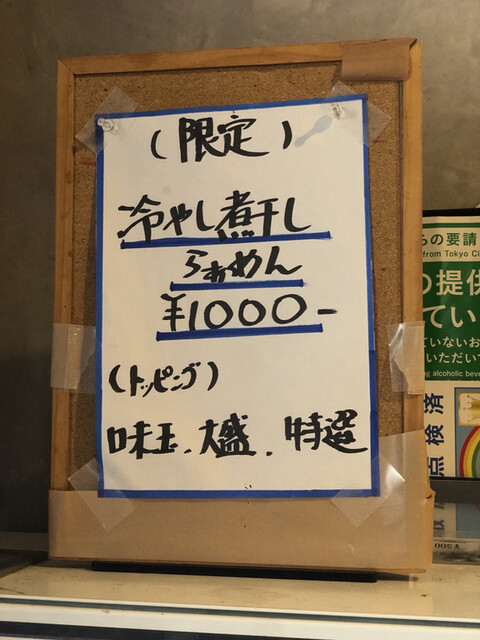 (限定)
冷やし煮干し
らぁめん
¥1000-
(トッピング)
味玉、大盛、特選
らの要請
from Tokyo Ci
の提供
てい
ていないお
いただいて
ng alcoholic beve
点検済